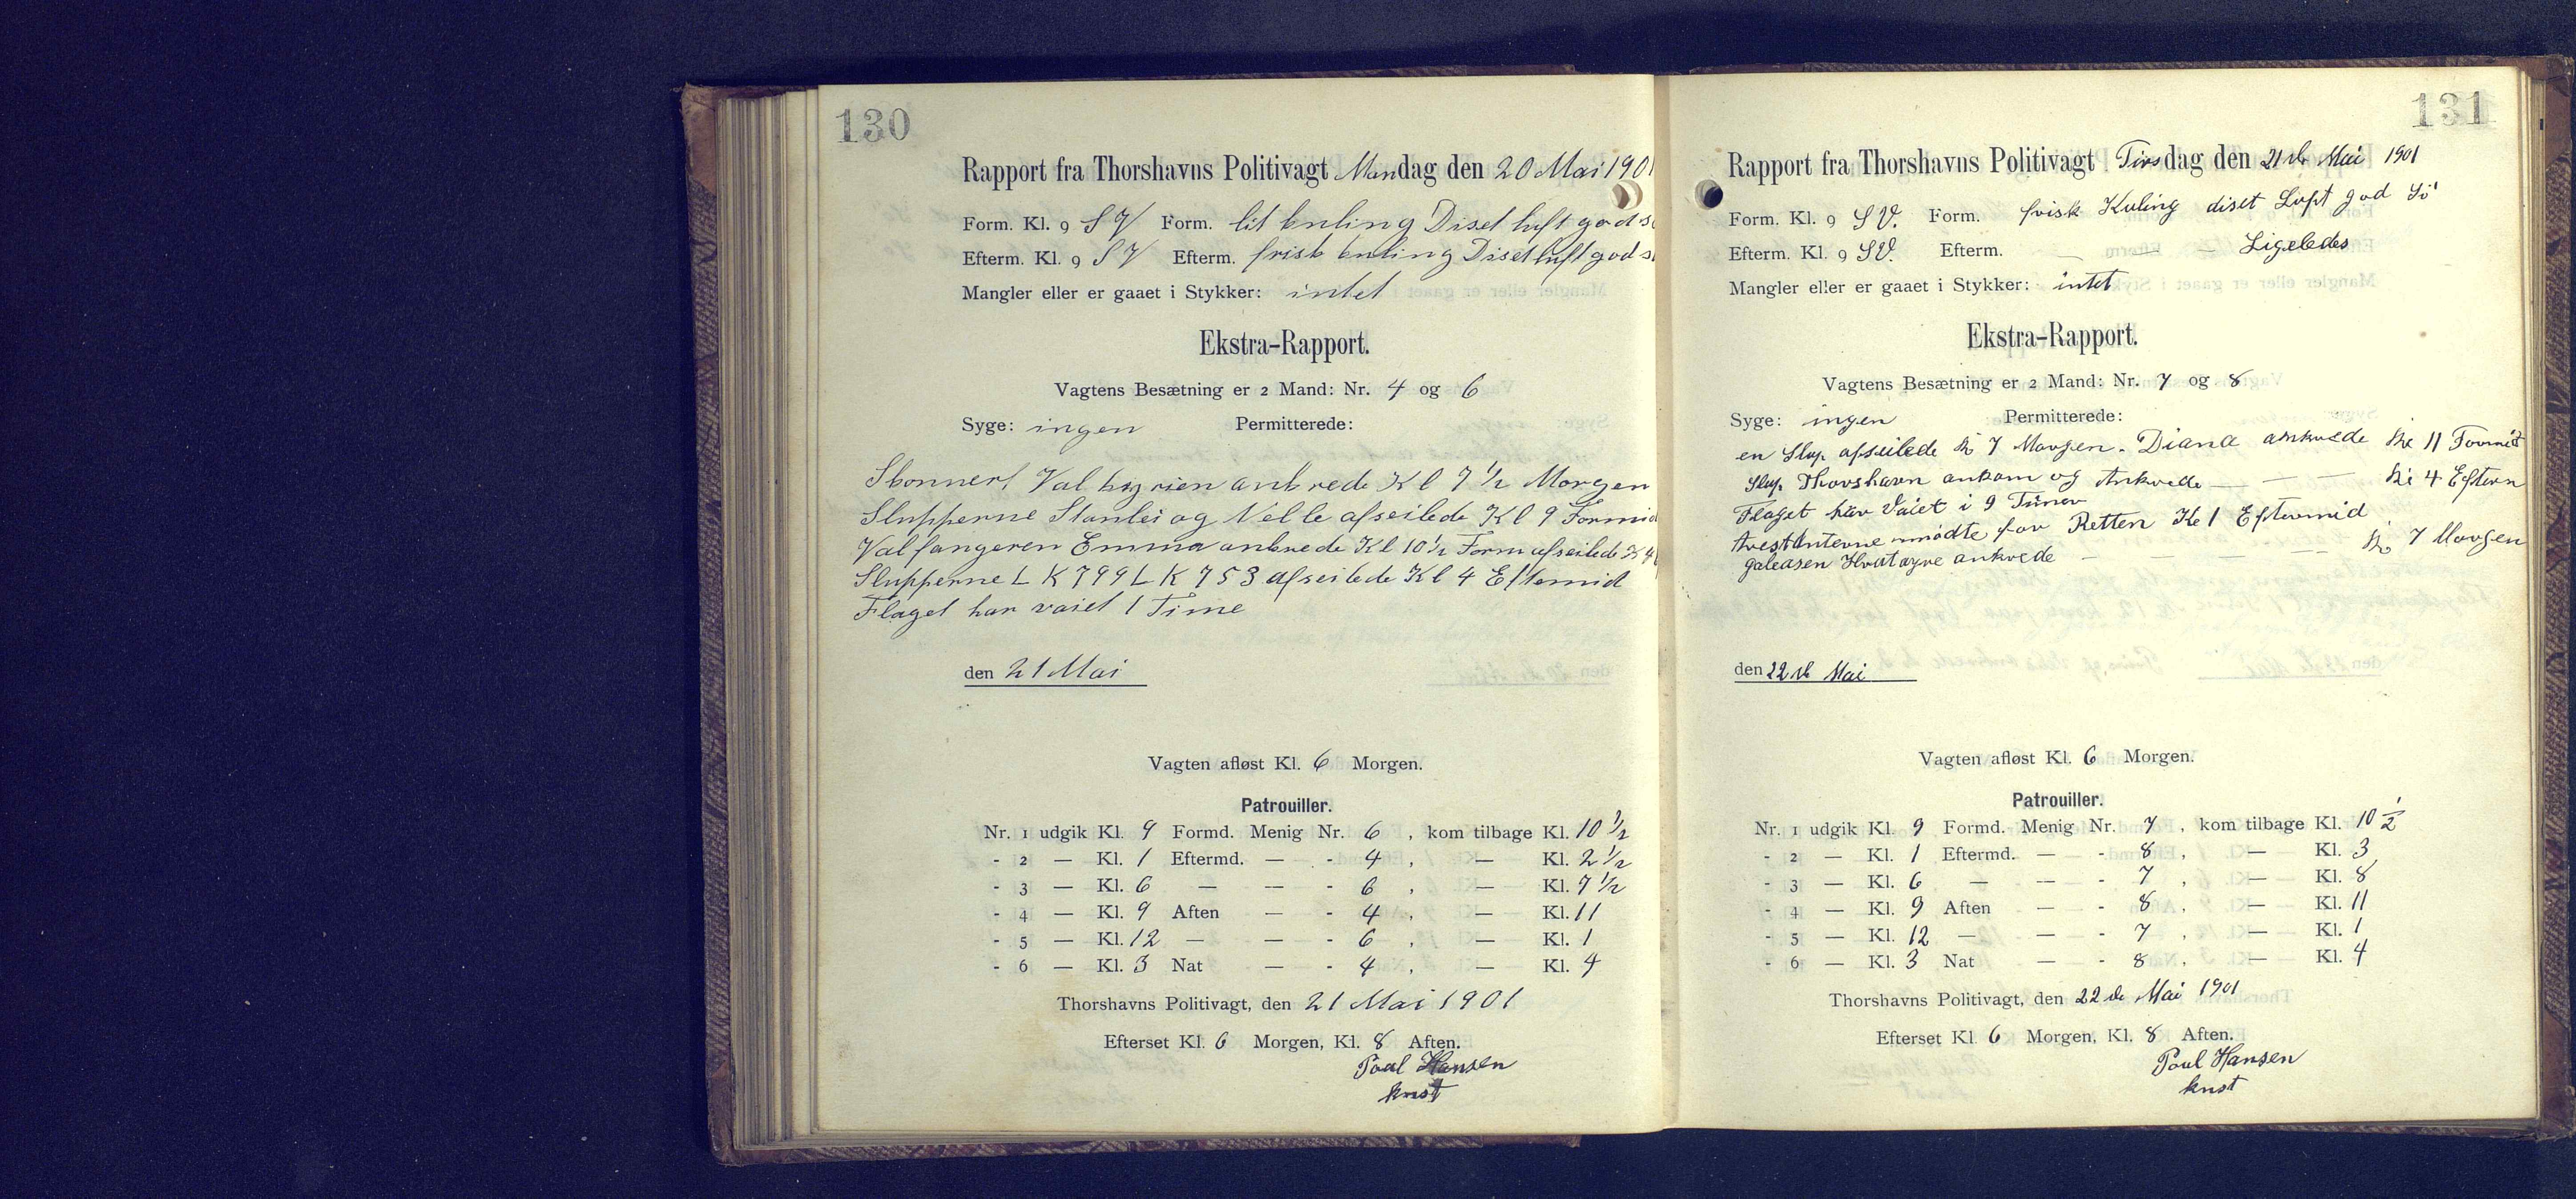 130
Rapport fra Thorshavns Politivagt Mandag den 20 Mai 1901
Form. Kl. 9 S V Form. lit kuling Diset luft god s
Efterm. Kl. 9 S V Efterm. frisk kuling Diset luft god s
Mangler eller er gaaet i Stykker: intet
Ekstra-Rapport.
Vagtens Besætning er 2 Mand: Nr. 4 og 6
Syge: ingen Permitterede:
Skonnert Valkyrien ankrede Kl 7 1/2 Morgen
Slupperne Stanlei og Nelle afseilede Kl 9 Formid
Valfangeren Emma ankrede Kl 10 1/2 Form afseilede K 4
Slupperne L K 799 L K 753 afseilede Kl 4 Eftemid
Flaget har vaiet 1 Time
den 21 Mai
Vagten afløst Kl. 6 Morgen.
Patrouiller.
Nr. 1 udgik Kl. 9 Formd. Menig Nr. 6 , kom tilbage Kl. 10 1/2
- 2 — Kl. 1 Eftermd. — - 4 , — Kl. 2 1/2
- 3 — Kl. 6 — — - 6 , — Kl. 7 1/2
- 4 — Kl. 9 Aften — - 4 , — Kl. 11
- 5 — Kl. 12 — — - 6 , — Kl. 1
- 6 — Kl. 3 Nat — - 4 , — Kl. 4
Thorshavns Politivagt, den 21 Mai 1901
Efterset Kl. 6 Morgen, Kl. 8 Aften.
Poul Hansen
knst
131
Rapport fra Thorshavns Politivagt Tirsdag den 21 de Mai 1901
Form. Kl. 9 S V. Form. frisk Kuling diset Luft god Sö
Efterm. Kl. 9 SV. Efterm. — — — Ligeledes
Mangler eller er gaaet i Stykker: intet
Ekstra-Rapport.
Vagtens Besætning er 2 Mand: Nr. 7 og 8
Syge: ingen Permitterede:
en Slup afseilede Kl 7 Morgen. Diana ankrede Kl 11 Formid
Slup. Thorshavn ankom og Ankrede — — — Kl 4 Efterm
Flaget har Vaiet i 9 Timer
Arestanterne mødte for Retten Kl 1 Eftermid
galeasen ankrede — — — Kl 7 Morgen
den 22 de Mai
Vagten afløst Kl. 6 Morgen.
Patrouiller.
Nr. 1 udgik Kl. 9 Formd. Menig Nr. 7 , kom tilbage Kl. 10 1/2
- 2 — Kl. 1 Eftermd. — - 8 , — Kl. 3
- 3 — Kl. 6 — — - 7 , — Kl. 8
- 4 — Kl. 9 Aften — - 8 , — Kl. 11
- 5 — Kl. 12 — — - 7 , — Kl. 1
- 6 — Kl. 3 Nat — - 8 , — Kl. 4
Thorshavns Politivagt, den 22 de Mai 1901
Efterset Kl. 6 Morgen, Kl. 8 Aften.
Poul Hansen
knst